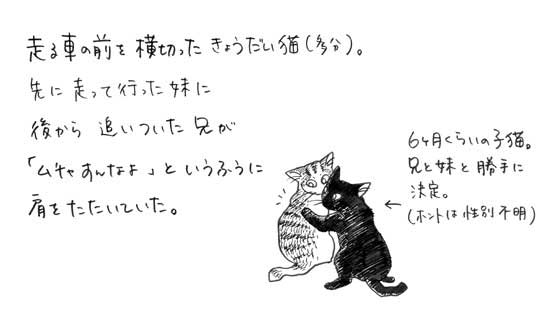 走る車の前を横切ったきょうだい猫(多分)。
先に走って行った妹に
後から追いついた兄が
「ムチャすんなよ」というふうに
肩をたたいていた。
6ヶ月くらいの子猫。
兄と妹と勝手に
決定。
(ホントは性別不明)